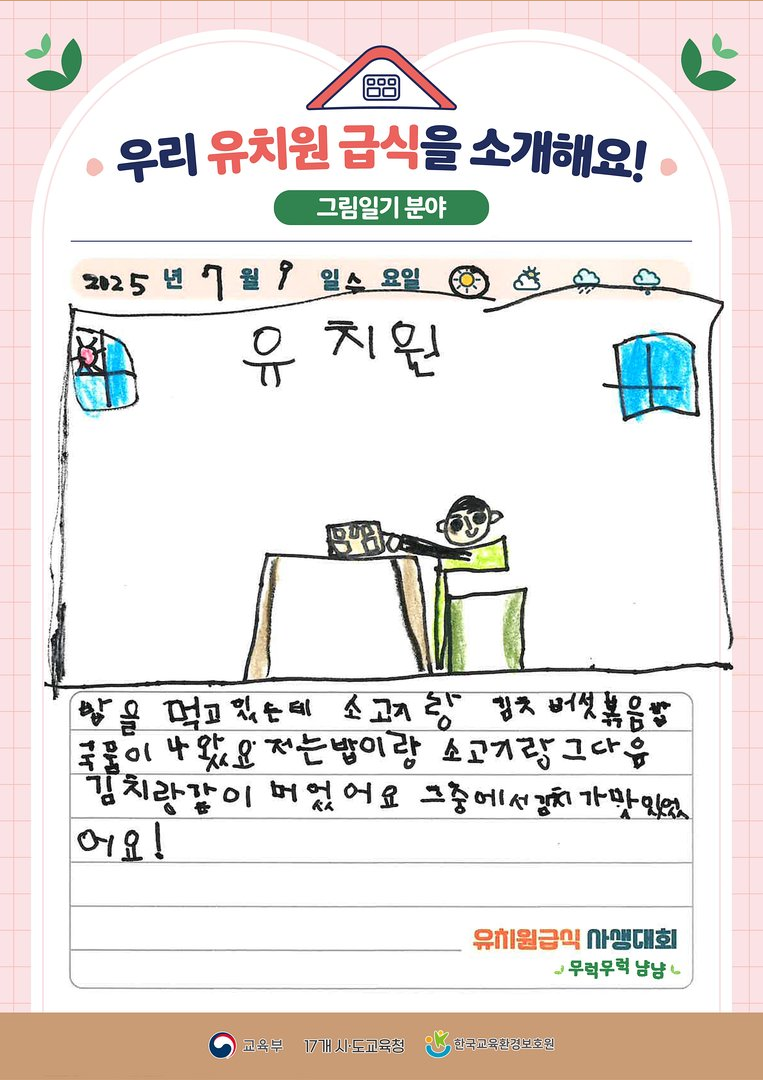 우리 유치원 급식을 소개해요!
그림일기 분야
2025 년 7 월 9 일 수 요일
유치원
밥을 먹고 있는데 소고기랑 김치 버섯볶음밥
국물이 나왔요 저는 밥이랑 소고기랑 그다음
김치랑 같이 머었어요 그중에서 김치가 맛있었
어요!
유치원급식 사생대회
무럭무럭 냠냠
교육부 17개 시·도교육청 한국교육환경보호원